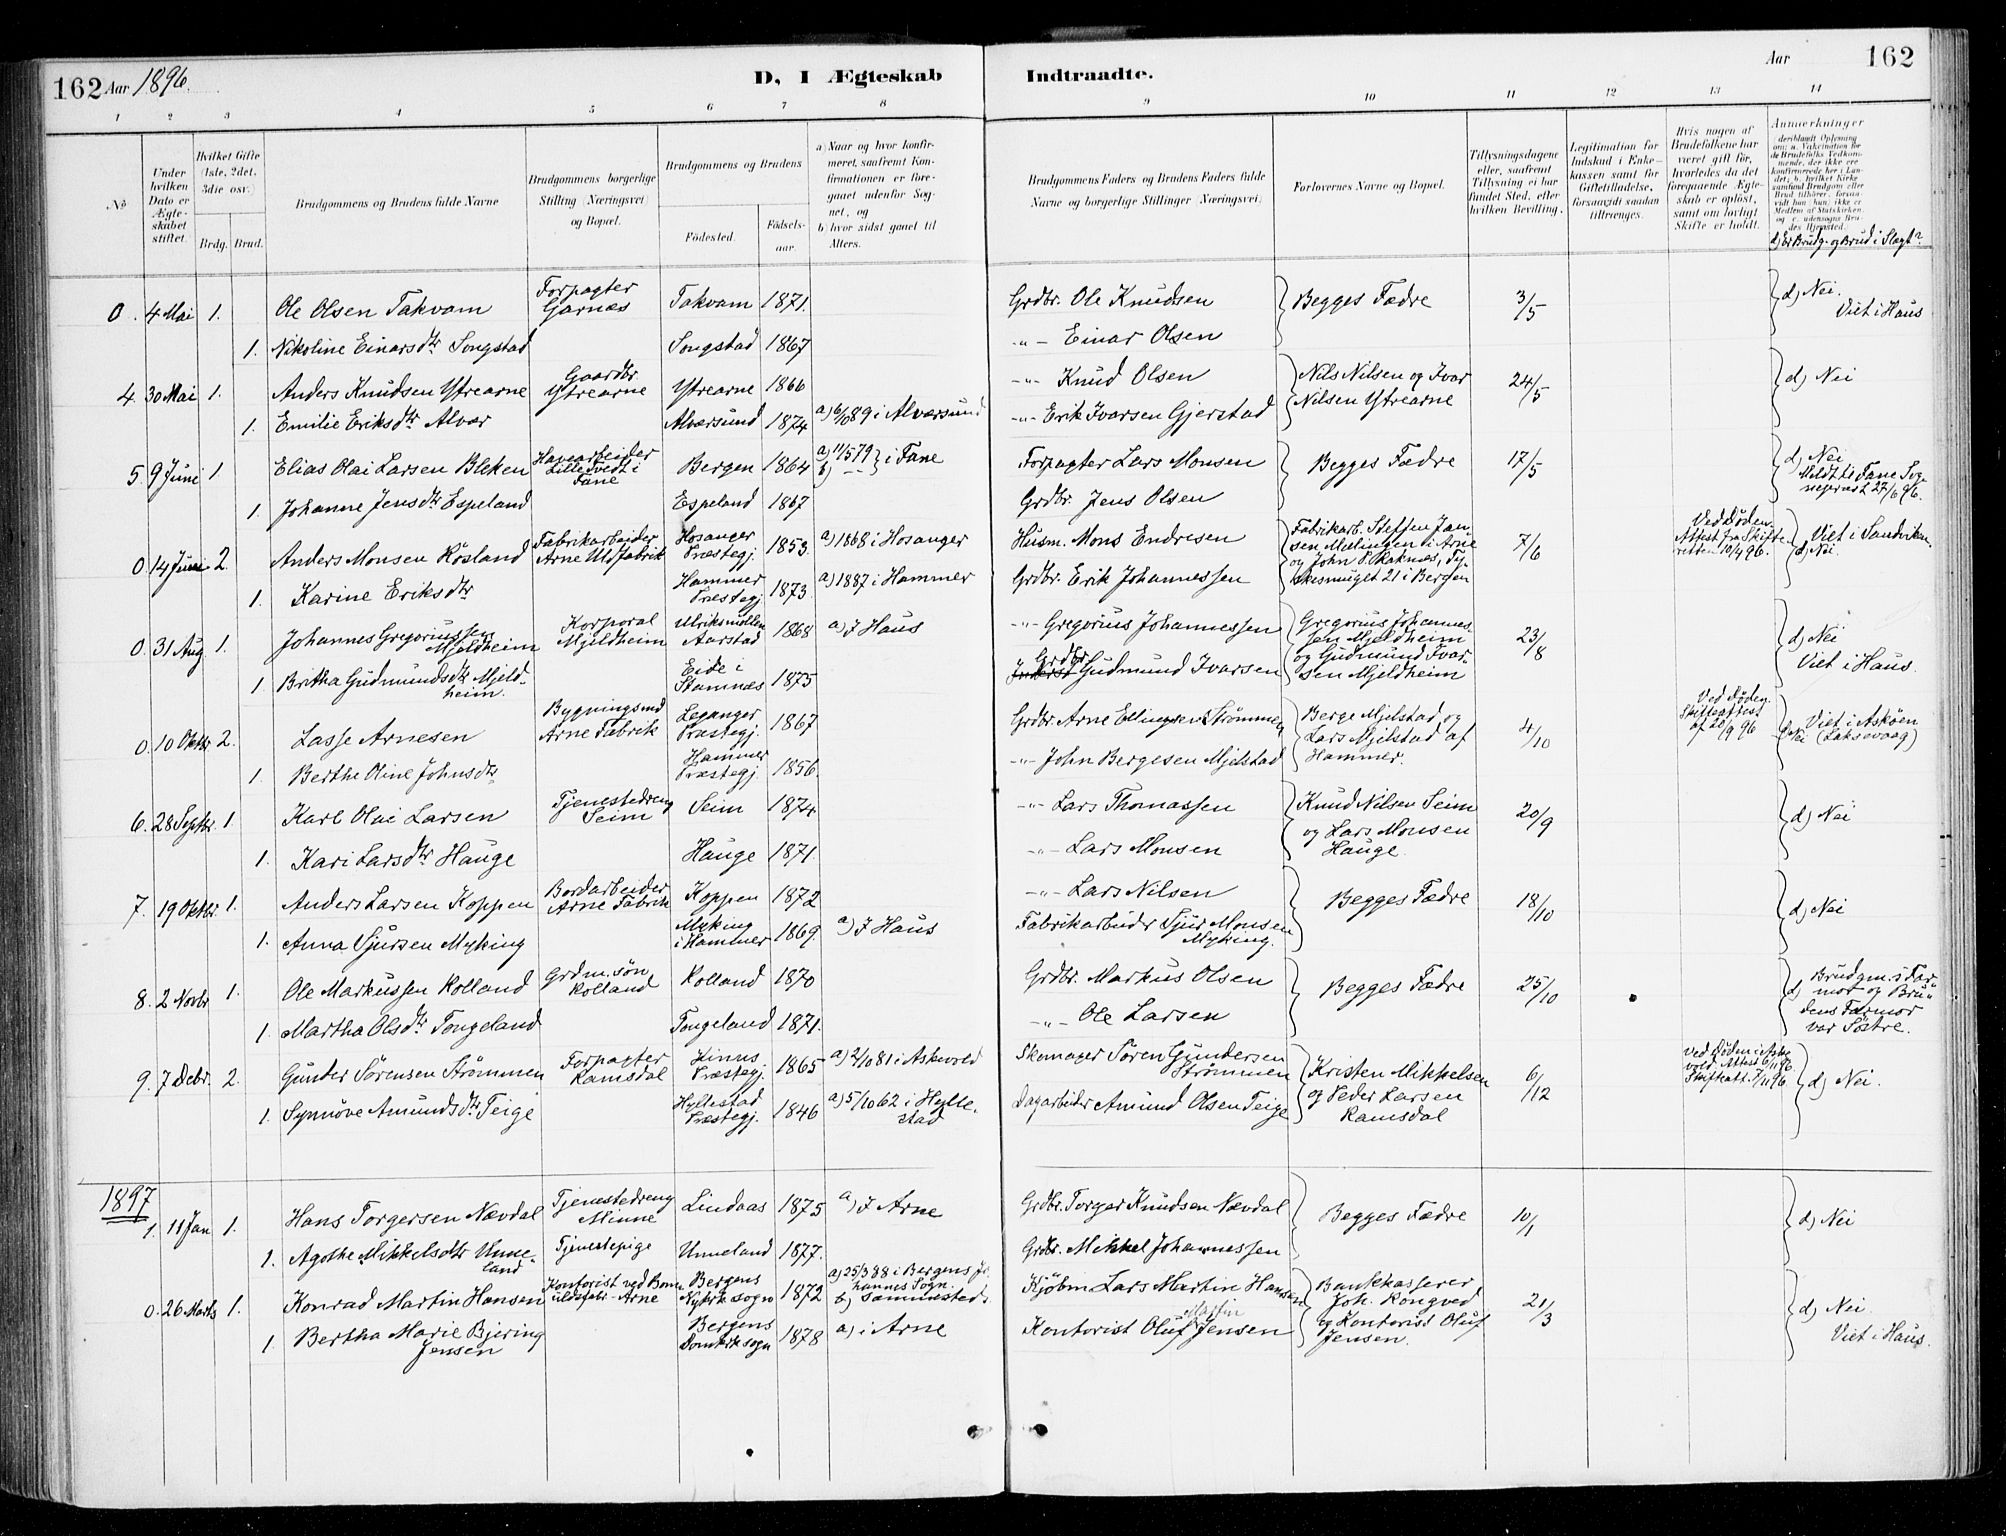 162 Aar 1896. D, I Ægteskab Indtraadte. Aar 162
1 2 3 4 5 6 7 8 9 10 11 12 13 14
No
Under hvilken Dato er Ægteskabet stiftet.
Hvilket Gifte (1ste, 2det, 3die osv.)
Brdg. Brud.
Brudgommens og Brudens fulde Navne
Brudgommens borgerlige Stilling (Næringsvei) og Bopæl.
Brudgommens og Brudens
Fødested. Fødsels-aar.
a) Naar og hvor konfirmeret, saafremt Konfirmationen er foregaaet udenfor Sognet, og
b) hvor sidst gaaet til Alters.
Brudgommens Faders og Brudens Faders fulde Navne og borgerlige Stillinger (Næringsvei)
Forlovernes Navne og Bopæl.
Tillysningsdagene eller, saafremt Tillysning ei har fundet Sted, efter hvilken Bevilling.
Legitimation for Indskud i Enkekassen samt for Giftetilladelse, forsaavidt saadan tiltrænges.
Hvis nogen af Brudefolkene har været gift før, hvorledes da det foregaaende Ægteskab er opløst, samt om lovligt Skifte er holdt.
Anmerkninger
(deriblandt Oplysning om: a. Vakcination for de Brudefolks Vedkommende, der ikke ere konfirmerede her i Landet; b. hvilket Kirkesamfund Brudgom eller Brud tilhører, forsaavidt han (hun) ikke er Medlem af Statskirken, og c. udensogns Brudes Hjemsted.
d) Er Brudg. og Brud i Slægt?
0. 4 Mai 1. Ole Olsen Takvam Forpagter Garnæs Takvam 1871. Grdbr. Ole Knudsen Begges Fædre 3/5 d) Nei. Viet i Haus
1. Nikoline Einarsdtr Songstad Songstad 1867 -"- Einar Olsen
4. 30 Mai 1. Anders Knudsen Ytrearne Gaardbr. Ytrearne Ytrearne 1866 -"- Knud Olsen Nils Nilsen og Ivar Nilsen Ytrearne 24/5 d) Nei
1. Emilie Eriksdtr Alvær Alværsund 1874 a) 6/10 89 i Alværsund -"- Erik Ivarsen Gjerstad
5. 9 Juni 1 Elias Olai Larsen Bleken Havearbeider Lille Tvedt i Fane Bergen 1864 a) 11/5 79 b) -"- i Fane Forpagter Lars Monsen Begges Fædre 17/5 d) Nei Meldt til Fane Sogneprest 27/6 96.
1. Johanne Jensdtr Espeland Espeland 1867 Grdbr. Jens Olsen
0. 14 Juni 2. Anders Monsen Rösland Fabrikarbeider Arne Uldfabrik Hosanger Præstegj. 1853. a) 1868 i Hosanger Husm. Mons Endresen Fabrikarb. Steffen Jansen Mælingen i Arne og John P. Raknæs, Tyskesmuget 21 i Bergen 7/6 Ved Døden. Attest fra Skifteretten 10/4 96. Viet i Sandviken. d) Nei
1. Karine Eriksdtr Hammer Præstegj. 1873. a) 1887 i Hammer Grdbr. Erik Johannessen
0. 31 Aug 1. Johannes Gregoriussen Mjeldheim Korporal Mjeldheim Ulriksmøllen Aarstad 1868 a) I Haus -"- Gregorius Johannessen Gregorius Johannessen Mjeldheim og Gudmund Ivarsen Mjeldheim 23/8 d) Nei Viet i Haus.
1 Britha Gudmundsdtr Mjeldheim. Eide i Stamnæs 1875 Grdbr Gudmund Ivarsen
0. 10 Oktbr 2. Lasse Arnesen Bygningsmd Arne Fabrik Leganger Præstegj. 1867 Grdbr. Arne Ellingsen Strømmen Berge Mjelstad og Lars Mjelstad af Hammer. 4/10 Ved Døden. Skifteattest af 20/9 96 Viet i Askøen (Laksevaag) d) Nei
1. Berthe Oline Johnsdtr Hammer Præstegj. 1856. -"- John Bergesen Mjelstad
6. 28 Septbr. 1. Karl Olai Larsen Tjenestedreng Seim Seim 1874. -"- Lars Thomassen Knud Nilsen Seim og Lars Monsen Hauge. 20/9 d) Nei
1. Kari Larsdtr Hauge Hauge 1871. -"- Lars Monsen
7. 19 Oktbr. 1. Anders Larsen Koppen Bordarbeider Arne Fabrik Koppen 1872 -"- Lars Nilsen Begges Fædre 18/10 d) Nei
1. Anna Sjursen Myking Myking i Hammer 1869. a) I Haus Fabrikarbeider Sjur Monsen Myking.
8. 2 Novbr 1. Ole Markussen Rolland Grdm. søn Rolland Rolland 1870 Grdbr. Markus Olsen Begges Fædre 25/10 d) Brudgm.s Farmor og Brudens Farmor var Söstre.
1. Martha Olsdtr Tongeland Tongeland 1871. -"- Ole Larsen
9. 7 Debr. 2. Gunder Sörensen Strömmen Forpagter Ramsdal Kinns Præstegj. 1865 a) 2/10 81 i Askevold Skomager Sören Gundersen Strömmen Kristen Mikkelsen og Peder Larsen Ramsdal 6/12 Ved Døden i Askevold. Attest 6/11 96. Skifteatt. 7/11 96. d) Nei.
1. Synnöve Amundsdtr Teige Hyllestad Præstegj. 1846 a) 5/10 62 i Hyllestad Dagarbeider Amund Olsen Teige
1897
1. 11 Jan 1. Hans Torgersen Nævdal Tjenestedreng Minne Lindaas 1875 a) I Arne Grdbr. Torger Knudsen Nævdal Begges Fædre 10/1 d) Nei
1. Agothe Mikkelsdtr Unneland Tjenestepige Unneland 1877. Grdbr. Mikkel Johannessen
0. 26 Marts 1. Konrad Martin Hansen Kontorist ved Bomuldsfabr. Arne Bergens Nykirksogn 1872 a) 25/3 88 i Bergens Johannes Sogn. b) sammesteds Kjöbm. Lars Martin Hansen Bankkasserer Joh. Rongved og Kontorist Oluf Jensen. 21/3 d) Nei. Viet i Haus.
1 Bertha Marie Bjering Jensen Bergens Domkirksogn 1878 a) i Arne Kontorist Oluf Martin Jensen